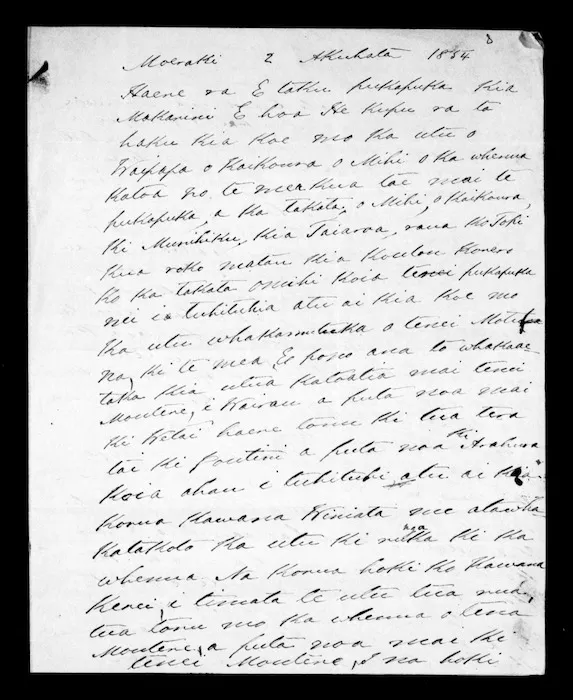 8
Moeraki 2 Akuhata 1854
Haere ra E taku pukapuka kia
Makarini E hoa He kupu ra ta
haku kia koe mo ka utu o
Waipapa o Kaikoura o Mihi o ka whenua
katoa no te mea kua tae mai te
pukapuka, a ka takata, o Mihi, o Kaikoura,
ki Murihiku, kia Taiaroa, raua ko Topi
kua roko matau kia
Ko ka takata omihi koia tenei pukapuka
nei ka tuhituhia atu ai kia koe mo
ka utu o tenei Motu
na, ki te mea E pono ana to whakaae-
taka kia utua katoatia mai tenei
Moutere, i Wairau a puta noa mai
ki haere tonu ki tua tera
tai ki Poutini a puta noa ki Arahura
koia ahau i tuhituhi atu ai kia
korua Kawana Winiata me atawha-
katakoto ka utu ki ruka ki ka
whenua Na korua hoki ko Kawana
Kerei, i timata te utu tua nui,
tua tonu mo ka whenua o tena
Moutere, a puta noa mai ki
tenei Moutere, I na hoki